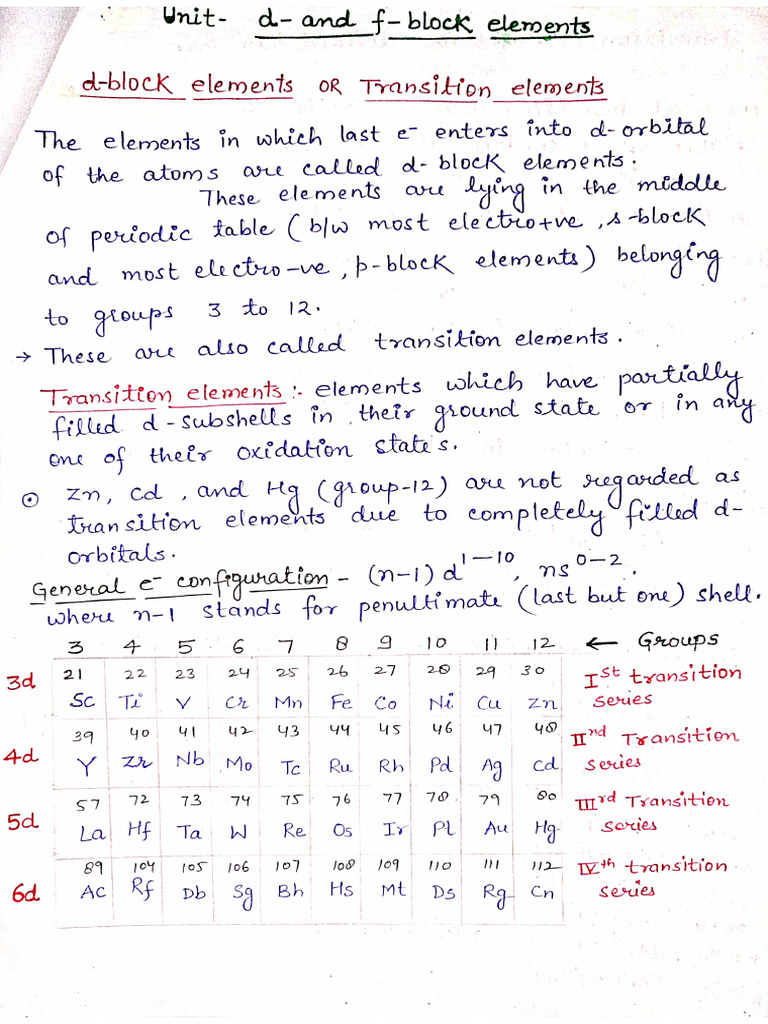 Unit- d- and f-block elements
d-block elements OR Transition elements
The elements in which last e⁻ enters into d-orbital
of the atoms are called d-block elements.
These elements are lying in the middle
of periodic table (b/w most electro+ve, s-block
and most electro-ve, p-block elements) belonging
to groups 3 to 12.
→ These are also called transition elements.
Transition elements:- elements which have partially
filled d-subshells in their ground state or in any
one of their oxidation states.
⊙ Zn, Cd, and Hg (group-12) are not regarded as
transition elements due to completely filled d-
orbitals.
General e⁻ configuration - (n-1) d¹⁻¹⁰, ns⁰⁻².
where n-1 stands for penultimate (last but one) shell.
3 4 5 6 7 8 9 10 11 12 ← Groups
3d 21 22 23 24 25 26 27 28 29 30 Ist transition
Sc Ti V Cr Mn Fe Co Ni Cu Zn series
39 40 41 42 43 44 45 46 47 48 IInd Transition
4d Y Zr Nb Mo Tc Ru Rh Pd Ag Cd series
57 72 73 74 75 76 77 78 79 80 IIIrd Transition
5d La Hf Ta W Re Os Ir Pt Au Hg series
89 104 105 106 107 108 109 110 111 112 IVth transition
6d Ac Rf Db Sg Bh Hs Mt Ds Rg Cn series